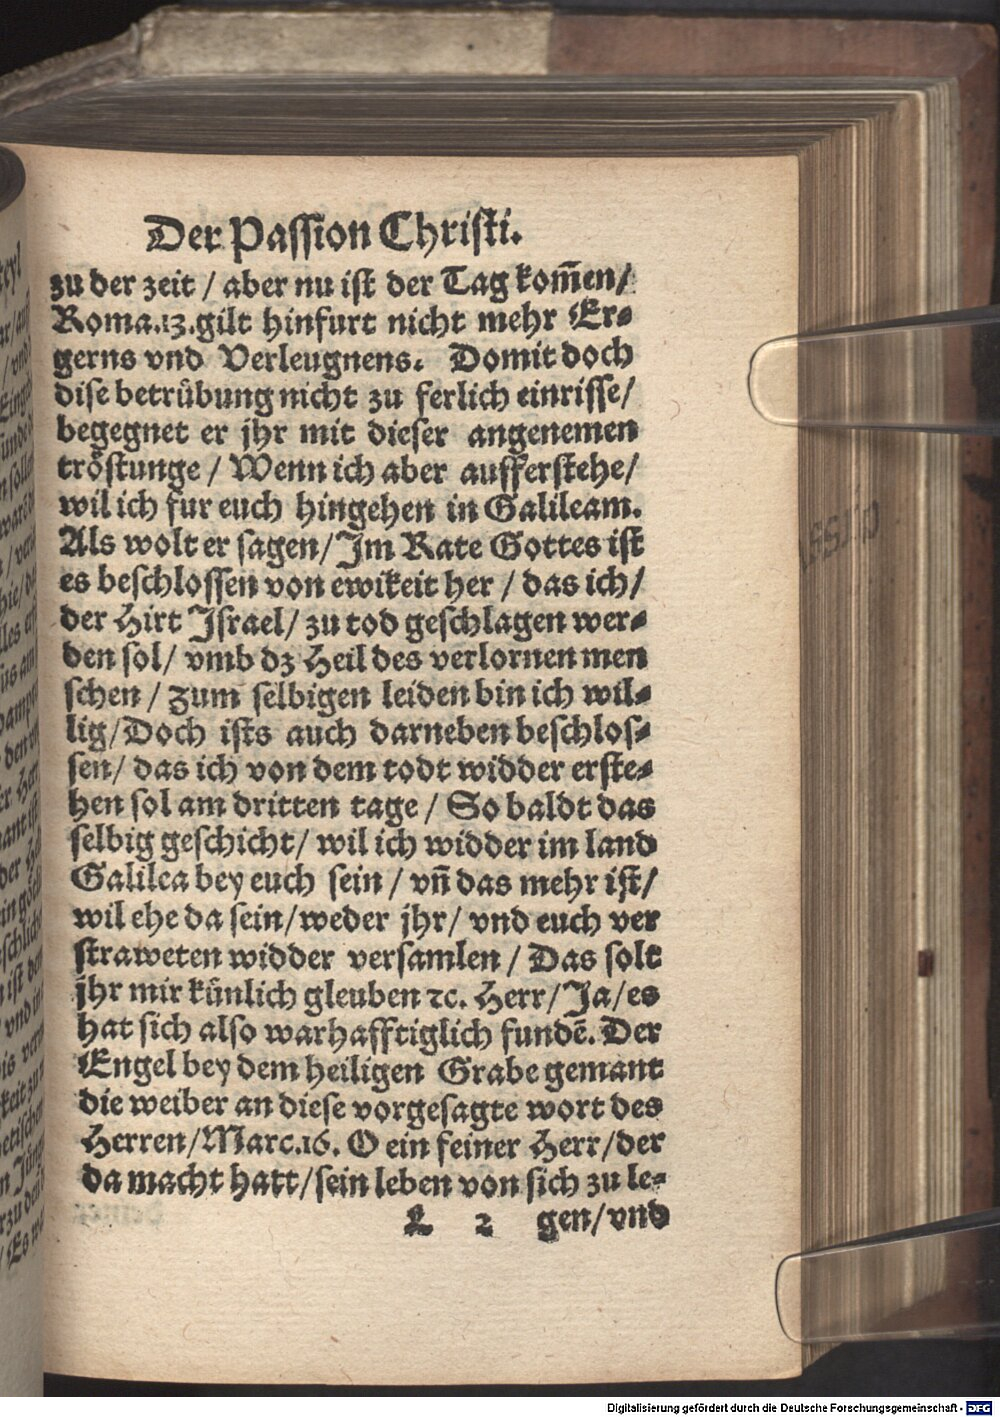 Der Passion Christi.
zu der zeit / aber nu ist der Tag kom̃en/
Roma.13.gilt hinfurt nicht mehr Er⸗
gerns vnd Verleugnens. Domit doch
dise betrübung nicht zu ferlich einrisse/
begegnet er jhr mit dieser angenemen
tröstunge / Wenn ich aber aufferstehe/
wil ich fur euch hingehen in Galileam.
Als wolt er sagen/Im Rate Gottes ist
es beschlossen von ewikeit her / das ich/
der Hirt Israel/ zu tod geschlagen wer⸗
den sol/ vmb dz Heil des verlornen men
schen / Zum selbigen leiden bin ich wil⸗
lig/Doch ists auch darneben beschlos⸗
sen/ das ich von dem todt widder erste⸗
hen sol am dritten tage / So baldt das
selbig geschicht/ wil ich widder im land
Galilea bey euch sein / vñ das mehr ist/
wil ehe da sein/weder jhr/ vnd euch ver
straweten widder versamlen / Das solt
jhr mir künlich gleuben ⁊c. Herr/Ja/es
hat sich also warhafftiglich fundē. Der
Engel bey dem heiligen Grabe gemant
die weiber an diese vorgesagte wort des
Herren/Marc.16. O ein feiner Herr/der
da macht hatt/sein leben von sich zu le⸗
L 2 gen/vnd
Digitalisierung gefördert durch die Deutsche Forschungsgemeinschaft - DFG